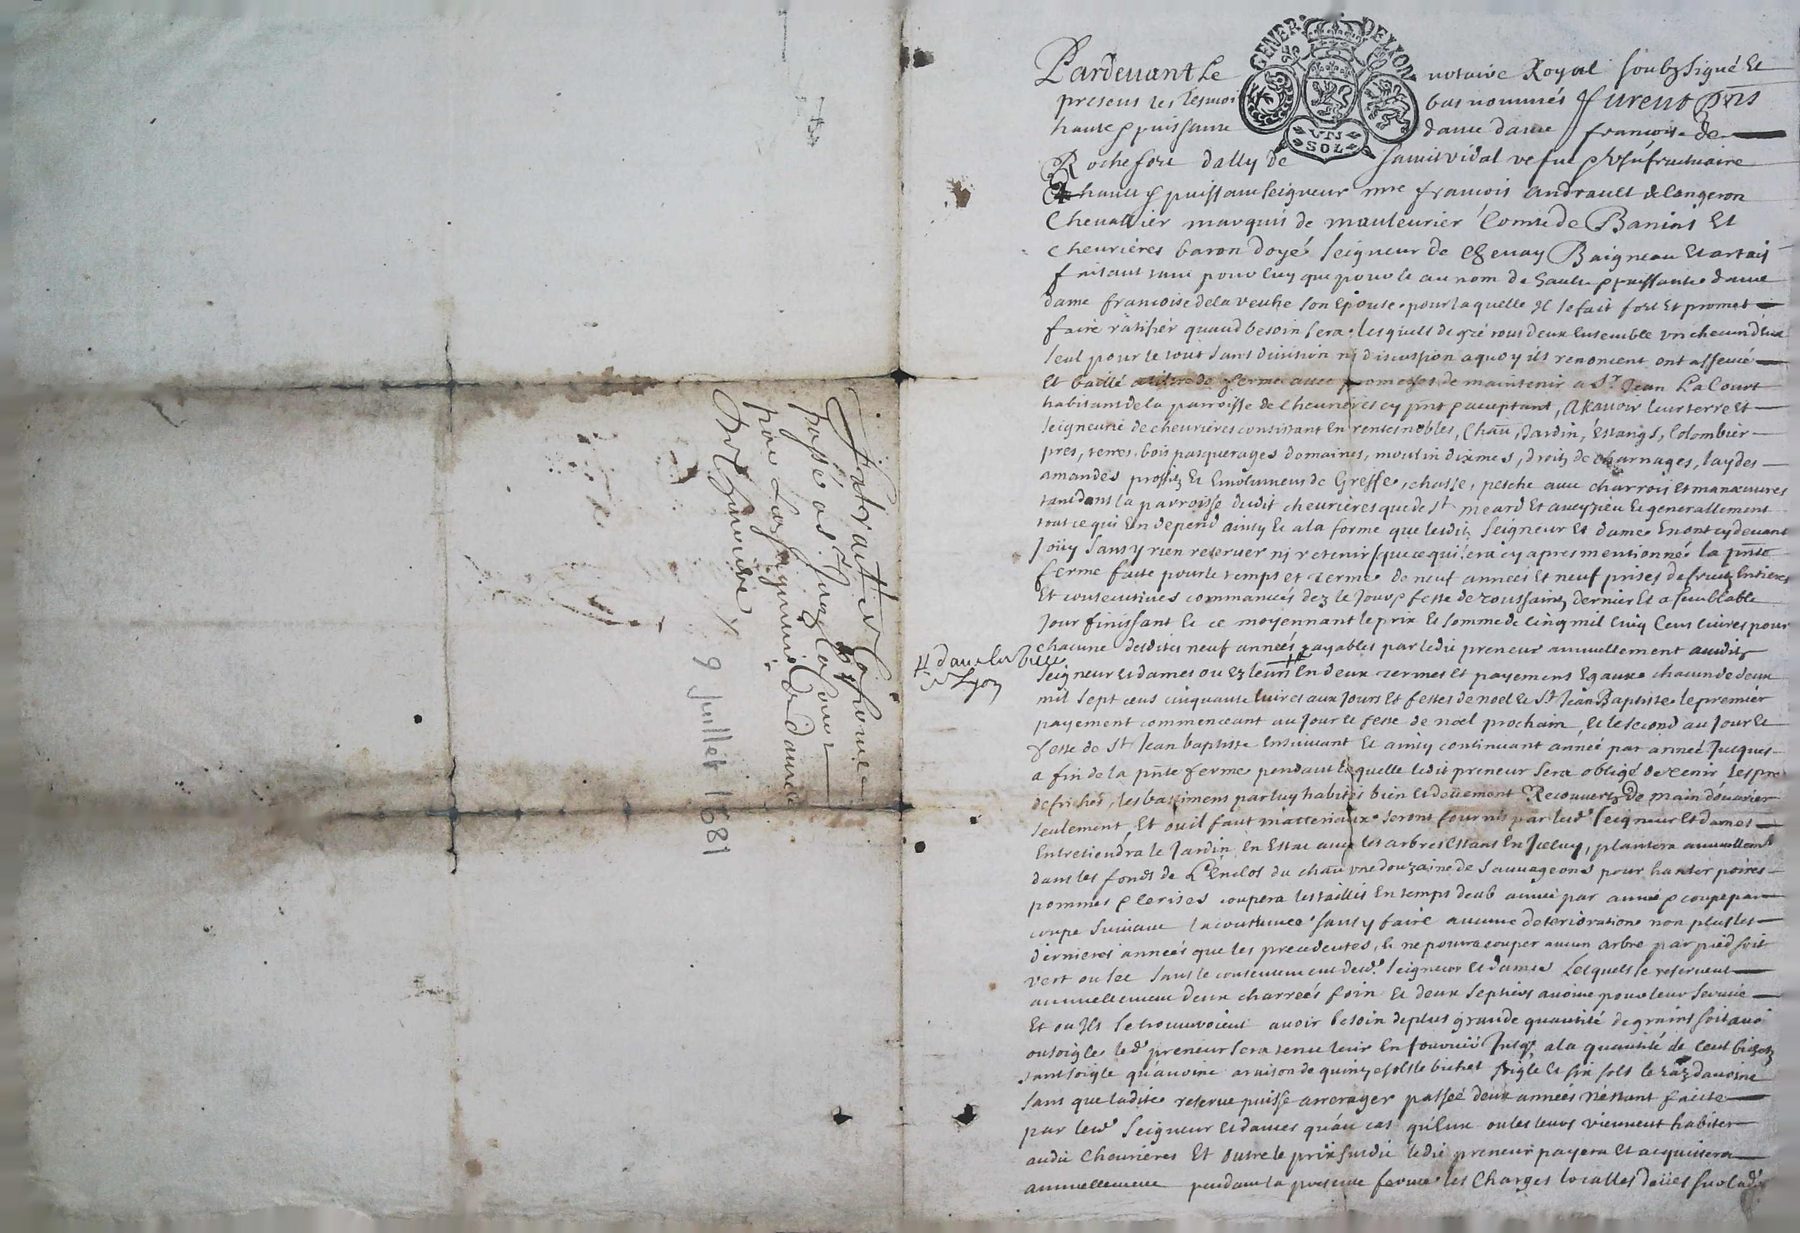 Extraict de la ferme
passé a Sr Jean Lacourt
par les seigneurs & dames
de Cheurieres
9 Juillet 1681
GENER. DE LYON
UN
SOL
Pardeuant Le notaire Royal soubzsigné Et
presens les tesmoins bas nommés furent pnts
haute & puissante dame dame francoise de
Rochefort dally de saint vidal vefue & Usufructuaire
haut & puissant seigneur mre francois andrault de langeron
Cheuallier marquis de mauleurier Comte de Banins Et
cheurières baron doyé seigneur de Chenay Baigneau Et artais
faisant tant pour luy que pour & au nom de haulte & puissante dame
dame francoise de la veuhe son Epouse pour laquelle Il se fait fort Et promet
faire ratifiér quand besoin sera lesquels de gré tous deux Ensemble un chacun d'eux
seul pour le tout sans diuision nj discussion a quoy ils renoncent ont assencé
Et baillé a tiltre de ferme auec promesses de maintenir a Sr Jean LaCourt
habitant de la parroisse de cheurières cy pnt & acceptant, Ascauoir leur terre Et
seigneurie de cheurières consistant En rentes nobles, Chau, Jardin, Estangs, Colombier
pres, terres, bois pasquerages domaines, moulin dixmes, droits de charnages, laydes
amandes proffitz Et Emolumens de Greffe, chasse, pesche auec charrois Et manœuures
tant dans la parroisse dudit cheurières que de St meard Et aueypeu Et generallement
tout ce qui En depend ainsy Et a la forme que lesditz seigneur Et dames En ont cydeuant
Joüy sans y rien reseruer nj retenir que ce qui sera cy apres mentionné la pnte
ferme faite pour le temps et terme de neuf années Et neuf prises de fruitz Entieres
Et consecutiues commancés dez le Jour & feste de toussaintz dernier Et a semblable
Jour finissant & ce moyennant le prix & somme de Cinq mil Cinq Cens liures pour
chacune desdites neuf années payables par ledit preneur annuellement ausditz
dans la ville
de Lyon
seigneur Et dames ou Ez leurs En deux termes Et payemens Egaux chacun de deux
mil sept cens cinquante liures aux Jours Et festes de noel & St Jean Baptiste le premiér
payement commenceant au Jour & feste de noel prochain, Et le second au Jour Et
feste de St Jean baptiste Ensuiuant Et ainsy continuant année par année Jucques
a fin de la pnte ferme pendant laquelle ledit preneur sera obligé de tenir les prés
defrichés, les bastimens par luy habités bien Et deüement Recouuertz de main d'ouurier
seulement, Et ou il faut matteriaux seront fournis par lesd. seigneur Et dames
Entretiendra le Jardin En Estat auec les arbres Estans En Jceluy, plantera annuellement
dans les fonds de L'Enclos du chau une douzaine de sauuageons pour hanter poires
pommes & cerises coupera les taillis En temps deub année par année & coupe par
coupe suiuant la coustume sans y faire aucune deterioration non plus les
dernieres années que les precedentes, & ne pourra couper aucun arbre par pied soit
vert ou sec sans le consentement desd. seigneur Et dames Lesquels se reseruent
annuellement deux charreés foin Et deux septiers auoine pour leur seruice
Et ou Ils se trouueroient auoir besoin de plus grande quantité de grains soit auoine
ou soigle led. preneur sera tenu leur En fournir Jusq. a la quantité de Cent bichetz
tant soigle qu'auoine a raison de quinze solz le bichet soigle Et six solz le raz dauoine
sans que ladite reserue puisse arrerager passeé deux années n'estant faite
par lesd. seigneur Et dames qu'au cas qu'Eux ou les leurs viennent habiter
audit Cheurières Et outre le prix susdit ledit preneur payera Et acquittera
annuellement pendant la presente ferme les Charges localles deües sur lad.